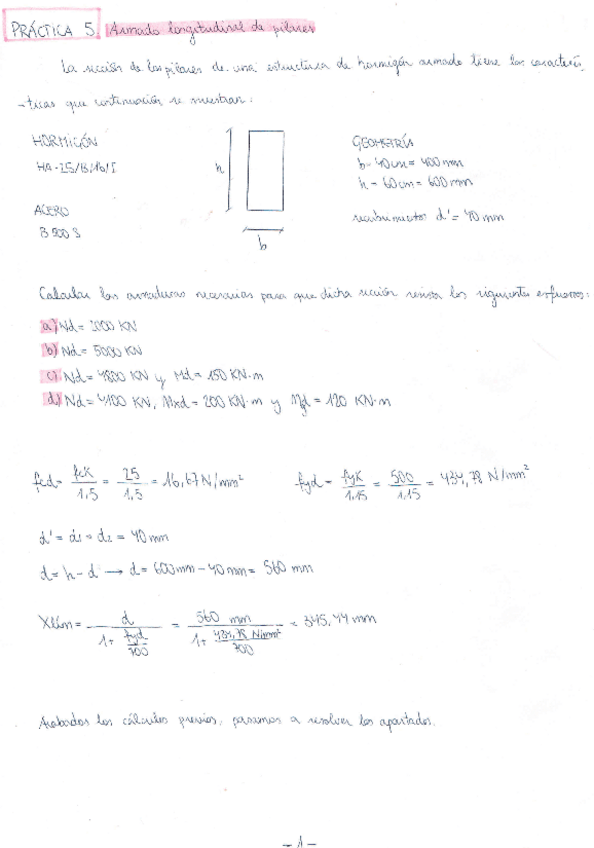 PRÁCTICA 5. Armado longitudinal de pilares
La sección de los pilares de una estructura de hormigón armado tiene las caracterís
-ticas que continuación se muestran:
HORMIGÓN
HA-25/B/16/I
ACERO
B 500 S
h
b
GEOMETRÍA
b= 40cm = 400 mm
h= 60cm = 600 mm
recubrimientos d' = 40 mm
Calcular las armaduras necesarias para que dicha sección resista los siguientes esfuerzos:
a) Nd = 3000 KN
b) Nd = 5000 KN
c) Nd = 4800 KN y Md = 150 KN·m
d) Nd = 4100 KN, Mxd = 200 KN·m y Myd = 120 KN·m
fcd = fcK / 1,5 = 25 / 1,5 = 16,67 N/mm² fyd = fyK / 1,15 = 500 / 1,15 = 434,78 N/mm²
d' = d1 = d2 = 40 mm
d = h - d → d = 600 mm - 40 mm = 560 mm
Xlím = d / 1 + fyd / 700 = 560 mm / 1 + 434,78 N/mm² / 700 = 345,44 mm
Acabados los cálculos previos, pasamos a resolver los apartados.
- 1 -